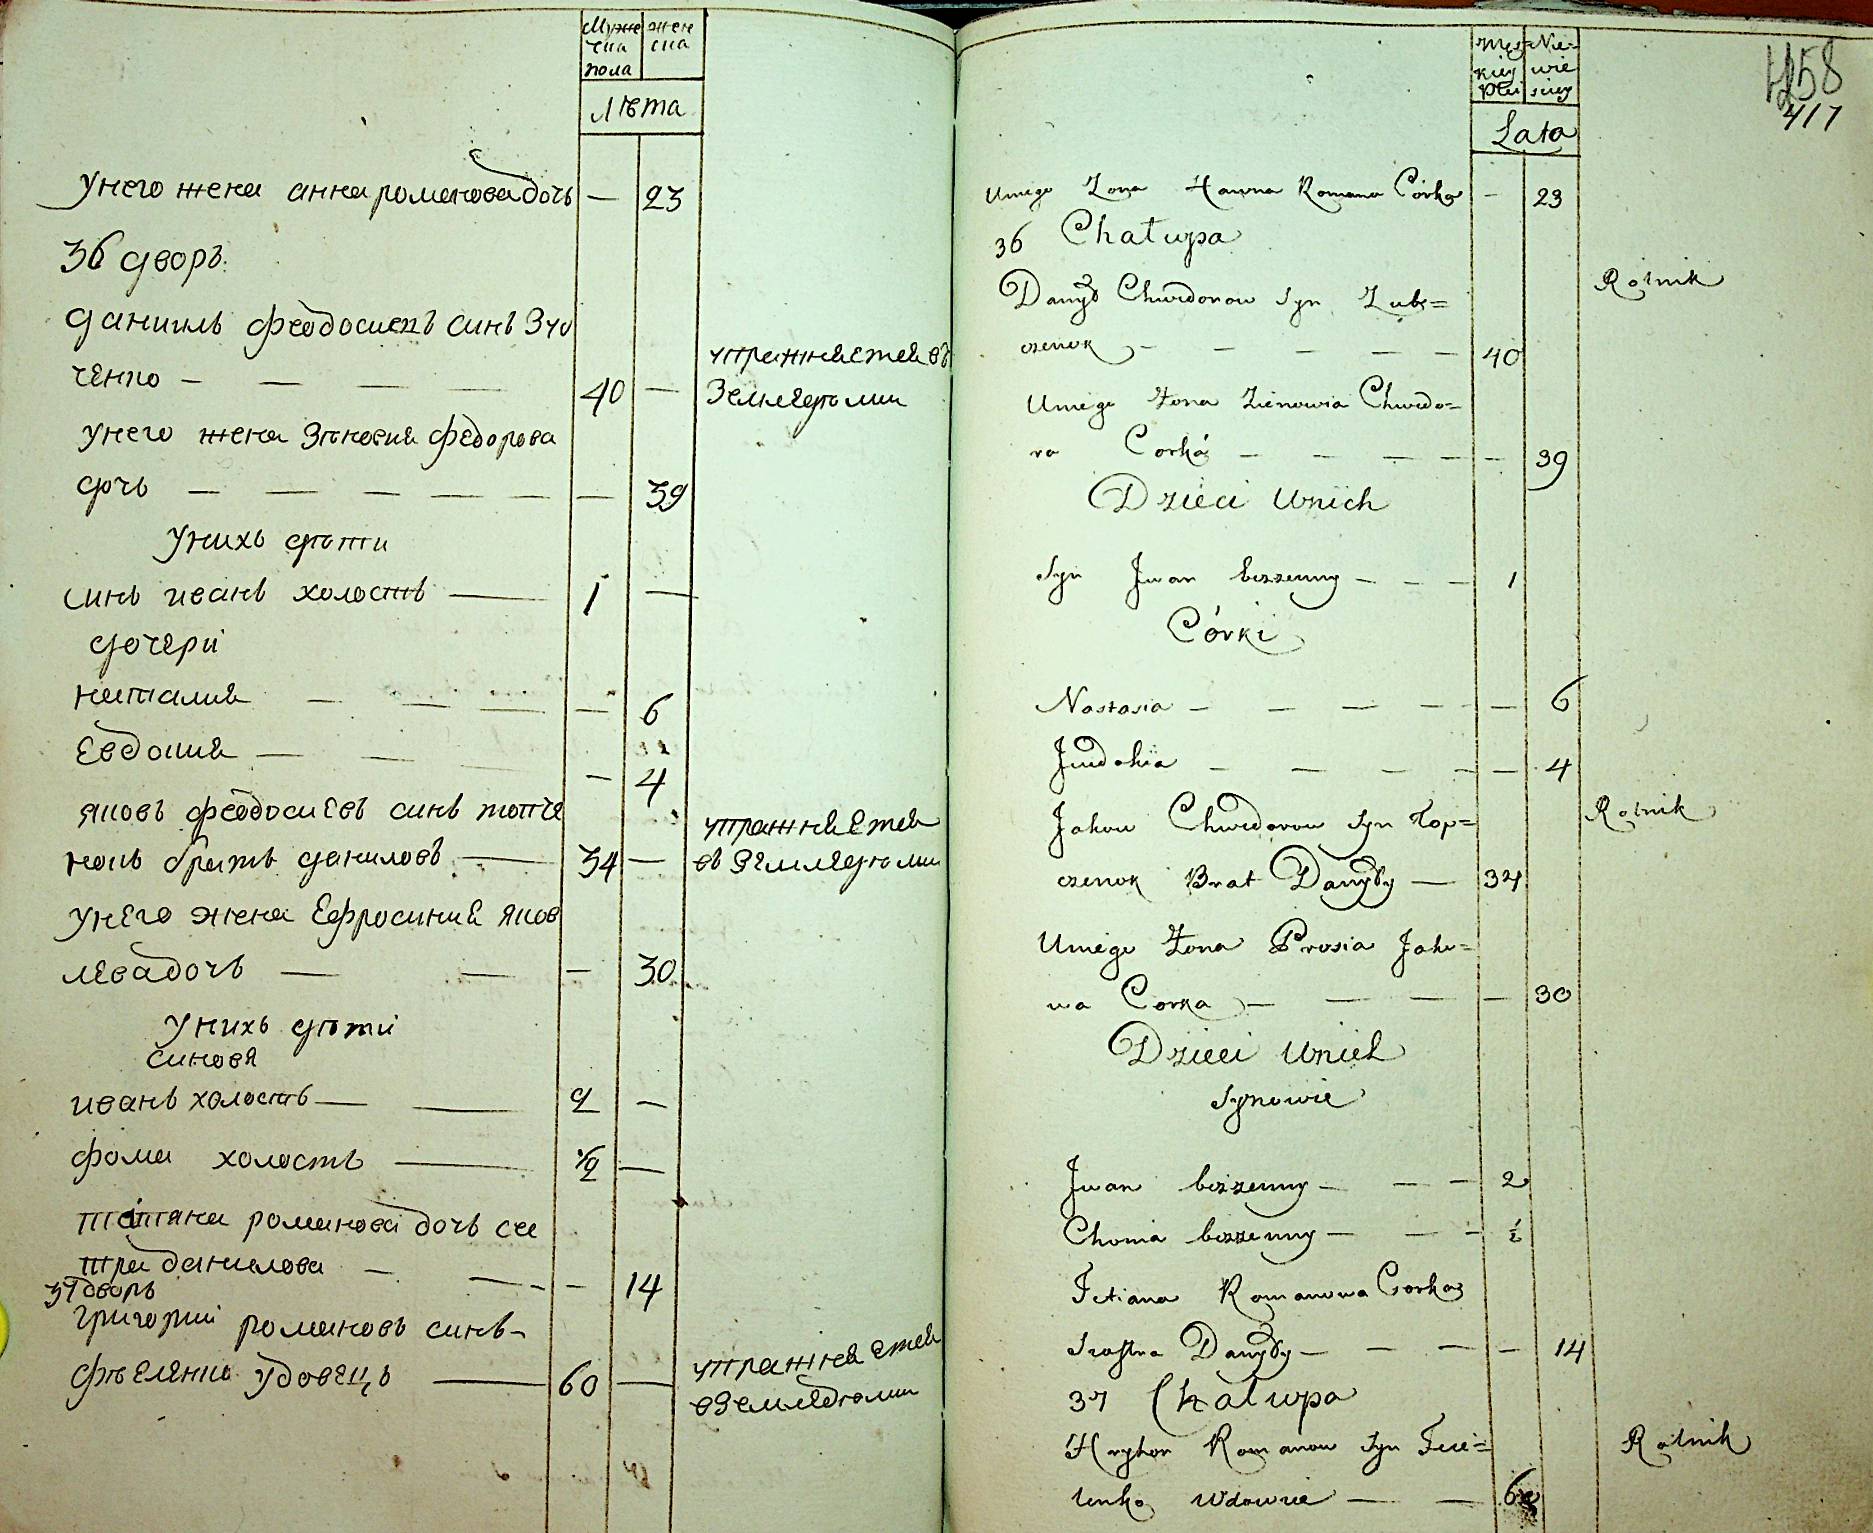 Мужеска пола
женска
Лѣта
У него жена анна романова дочь — 23
36 дворъ.
данииль феодосиевъ синъ
ченко — — — — 40 —
упражняется въ
Земледѣлии
у него жена Зѣновия федорова
дочь — — — — — — 39
У нихъ дѣти
синъ иванъ холостъ — 1 —
дочери
наталия — — — — 6
Евдокия — — — — 4
яковъ феодосиевъ синъ топче
нокъ братъ даниловъ — 34 —
упражняется
въ Земледѣлии
у него жена Ефросиния яков
лева дочь — — — 30
У нихъ дѣти
синовя
иванъ холостъ — — 2 —
фома холостъ — 1/2 —
татяна романова дочь сес
тра данилова — — — 14
37 дворъ
григорий романовъ синъ
удовецъ — 60 —
упражняется
в Земледѣлии
Męskiey Płci
Niewieściey
Lata
458
417
Uniego Żona Hanna Romana Córka — 23
36 Chałupa
Rolnik
Danyło Chwedorow Syn
czenok — — — — — 40
Uniego Żona Zienowia Chwedo=
ra Corká — — — — — 39
Dzieci Unich
Syn Jwan bezżenny — — — 1
Córki
Nastasia — — — — — 6
Jewdokia — — — — — 4
Rolnik
Jakow Chwedorow Syn Top=
czenok Brat Danyły — 34
Uniego Żona Prosia Jako=
wa Corka — — — — 30
Dzieci Unich
Synowie
Jwan bezżenny — — — 2
Choma bezżenny — — — ½
Tetiana Romanowa Corka
Siostra Danyły — — — — 14
37 Chałupa
Rolnik
Hryhor Romanow Syn
lenko Wdowiec — — 60